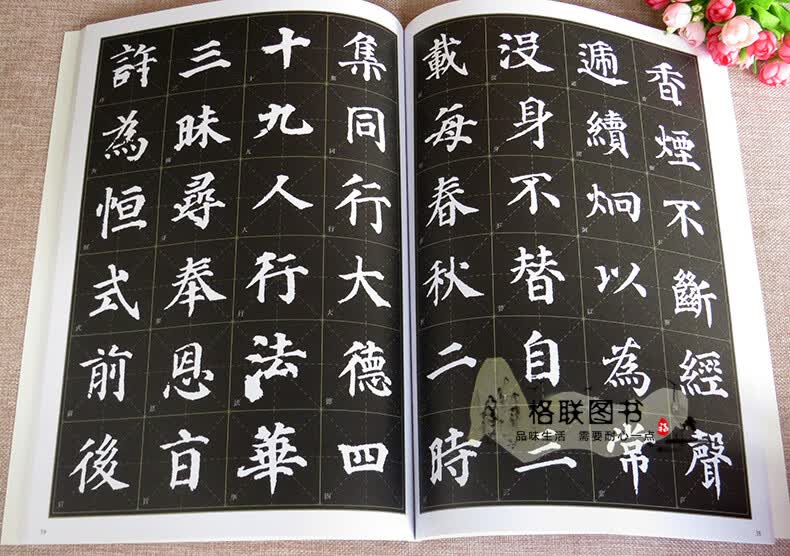 香煙不斷經聲
遞續炯以為常
沒身不替自三
載每春秋二時
集同行大德四
十九人行法華
三昧尋奉恩旨
許為恒式前後
格联图书
品味生活 需要耐心一点
福